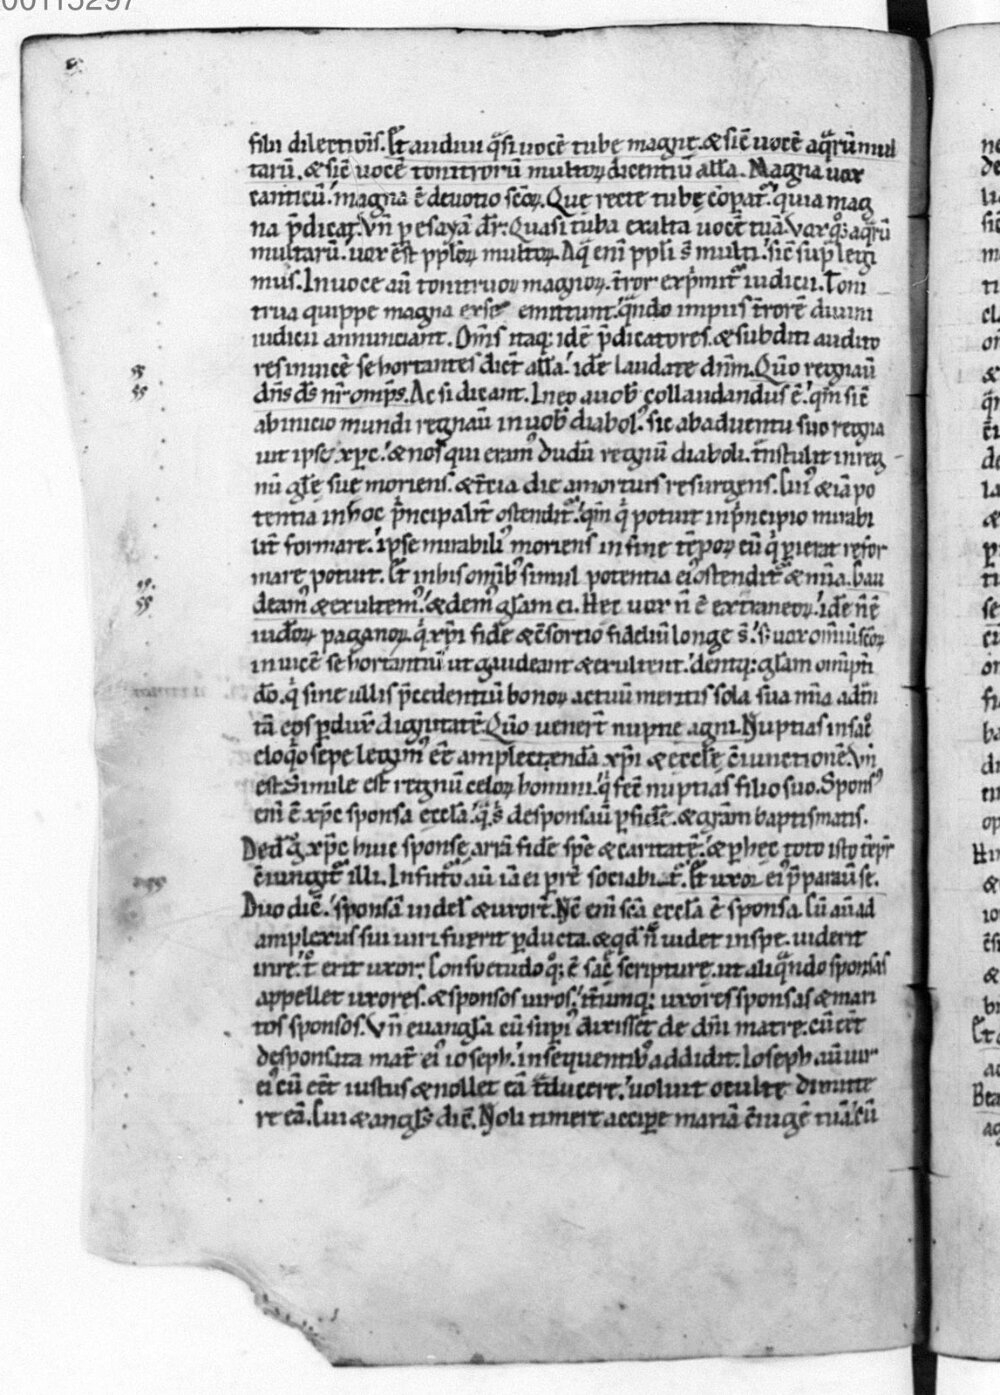 00115297
filii dilectiōis. Et audiui q̄si uocē tube magne. & sic̄ uocē aq̄rū mul
tarū. & sic̄ uocē tonitruorū multoꝝ dicentiū all̄a. Magna uox
canticū. magna ē deuotio sc̄oꝝ. Quę recte tubę cōpat̄. quia mag
na p̄dicat. Vn̄ p esayā dr̄. Quasi tuba exalta uocē tuā. Vox qͦꝫ aq̄rū
multarū. uox est pplōꝝ multoꝝ. Aq̄ eni ppli s̄ multi. sic̄ supͥ legi
mus. In uoce aū tonitruoꝝ magnoꝝ. t̄ror exp̄mit̄ iudicii. Toni
trua quippe magna emittunt. qn̄do impiis t̄rorē diuini
iudicii annunciant. Om̄s itaqꝫ idē p̄dicatores. & subditi audito
res inuicē se hortantes dict̄ all̄a. id ē laudate dn̄m. Qm̄ regnauͥ
dn̄s ds̄ nr̄ omp̄s. Ac si dicant. In eo a uobͥ collaudandus ē. qm̄ sic̄
ab inicio mundi regnauͥ in uobͥ diabolꝰ. sic ab aduentu suo regna
uit ipse xp̄c. & nos qui eramꝰ dudū regnū diaboli. t̄nstulit in reg
nū gl̄ę suę moriens. & t̄cia die a mortuis resurgens. Cuiꝰ & iā po
tentia in hoc p̄ncipalit̄ ostendit̄. qm̄ qͥ potuit in p̄ncipio mirabi
lit̄ formare. ipse mirabiliꝰ moriens in fine tēpoꝝ eū qͥ pierat refor
mare potuit. Et in his omībꝰ simul potentia eiꝰ ostendit̄ & mīa. Gau
deamꝰ & exultemꝰ. & demꝰ gl̄am ei. Hec uox n̄ ē extraneoꝝ. id ē n̄ ē
iudeoꝝ paganoꝝ. qͥ xp̄i fide & c̄sortio fideliū longe s̄. sꝫ uox omīū sc̄oꝝ
inuicē se hortantiū ut gaudeant & exultent. dentqꝫ gl̄am omp̄ti
dō. qͥ sine ullis p̄cedentiū bonoꝝ actuū meritis sola sua mīa ad
tā eos pdux̄ dignitatē. Qm̄ uenert̄ nuptię agni. Nuptias in sac̄
eloqͦ sepe legimꝰ ēē amplectenda xp̄i & eccl̄ę c̄iunctionē. Vn̄
est Simile est regnū celoꝝ homini. qͥ fec̄ nuptias filio suo. Sponsꝰ
eni ē xp̄c sponsa eccl̄a. q̄ s̄ desponsauͥ p fidē. & gr̄am baptismatis.
Ded̄ gͦ xp̄c huic sponsę arrā fidē spē & caritatē. & p hec toto isto tēpr̄
c̄iungit̄ illi. In futͦo aū iā ei pre sociabit̄. Et uxor eiꝰ p̄parauͥ se.
Duo dic̄. sponsā uidel & uxorē. Nc̄ eni sc̄a eccl̄a ē sponsa. Cū aū ad
amplexus sui uiri fuerit pducta. & qd̄ n̄c uidet in spe. uiderit
in re. tͦ erit uxor. Consuetudo qͦꝫ ē sac̄ scripturę. ut aliqn̄do sponsas
appellet uxores. & sponsos uiros. it̄umqꝫ uxores sponsas & mari
tos sponsos. Vn̄ euangl̄a cū supiꝰ dixisset de dn̄i matre. cū ēēt
desponsata mat̄ eiꝰ ioseph. in sequentibꝰ addidit. Ioseph aū uir
eiꝰ cū ēēt iustus & nollet eā t̄ducere. uoluit occulte dimitte
re eā. Cui & angl̄s dic̄. Noli timere accipe mariā c̄iugē tuā. cū